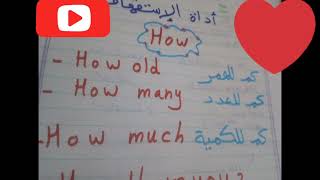 أداة الاستفهام
How
- How old كم للعمر
- How many كم للعدد
- How much كم للكمية